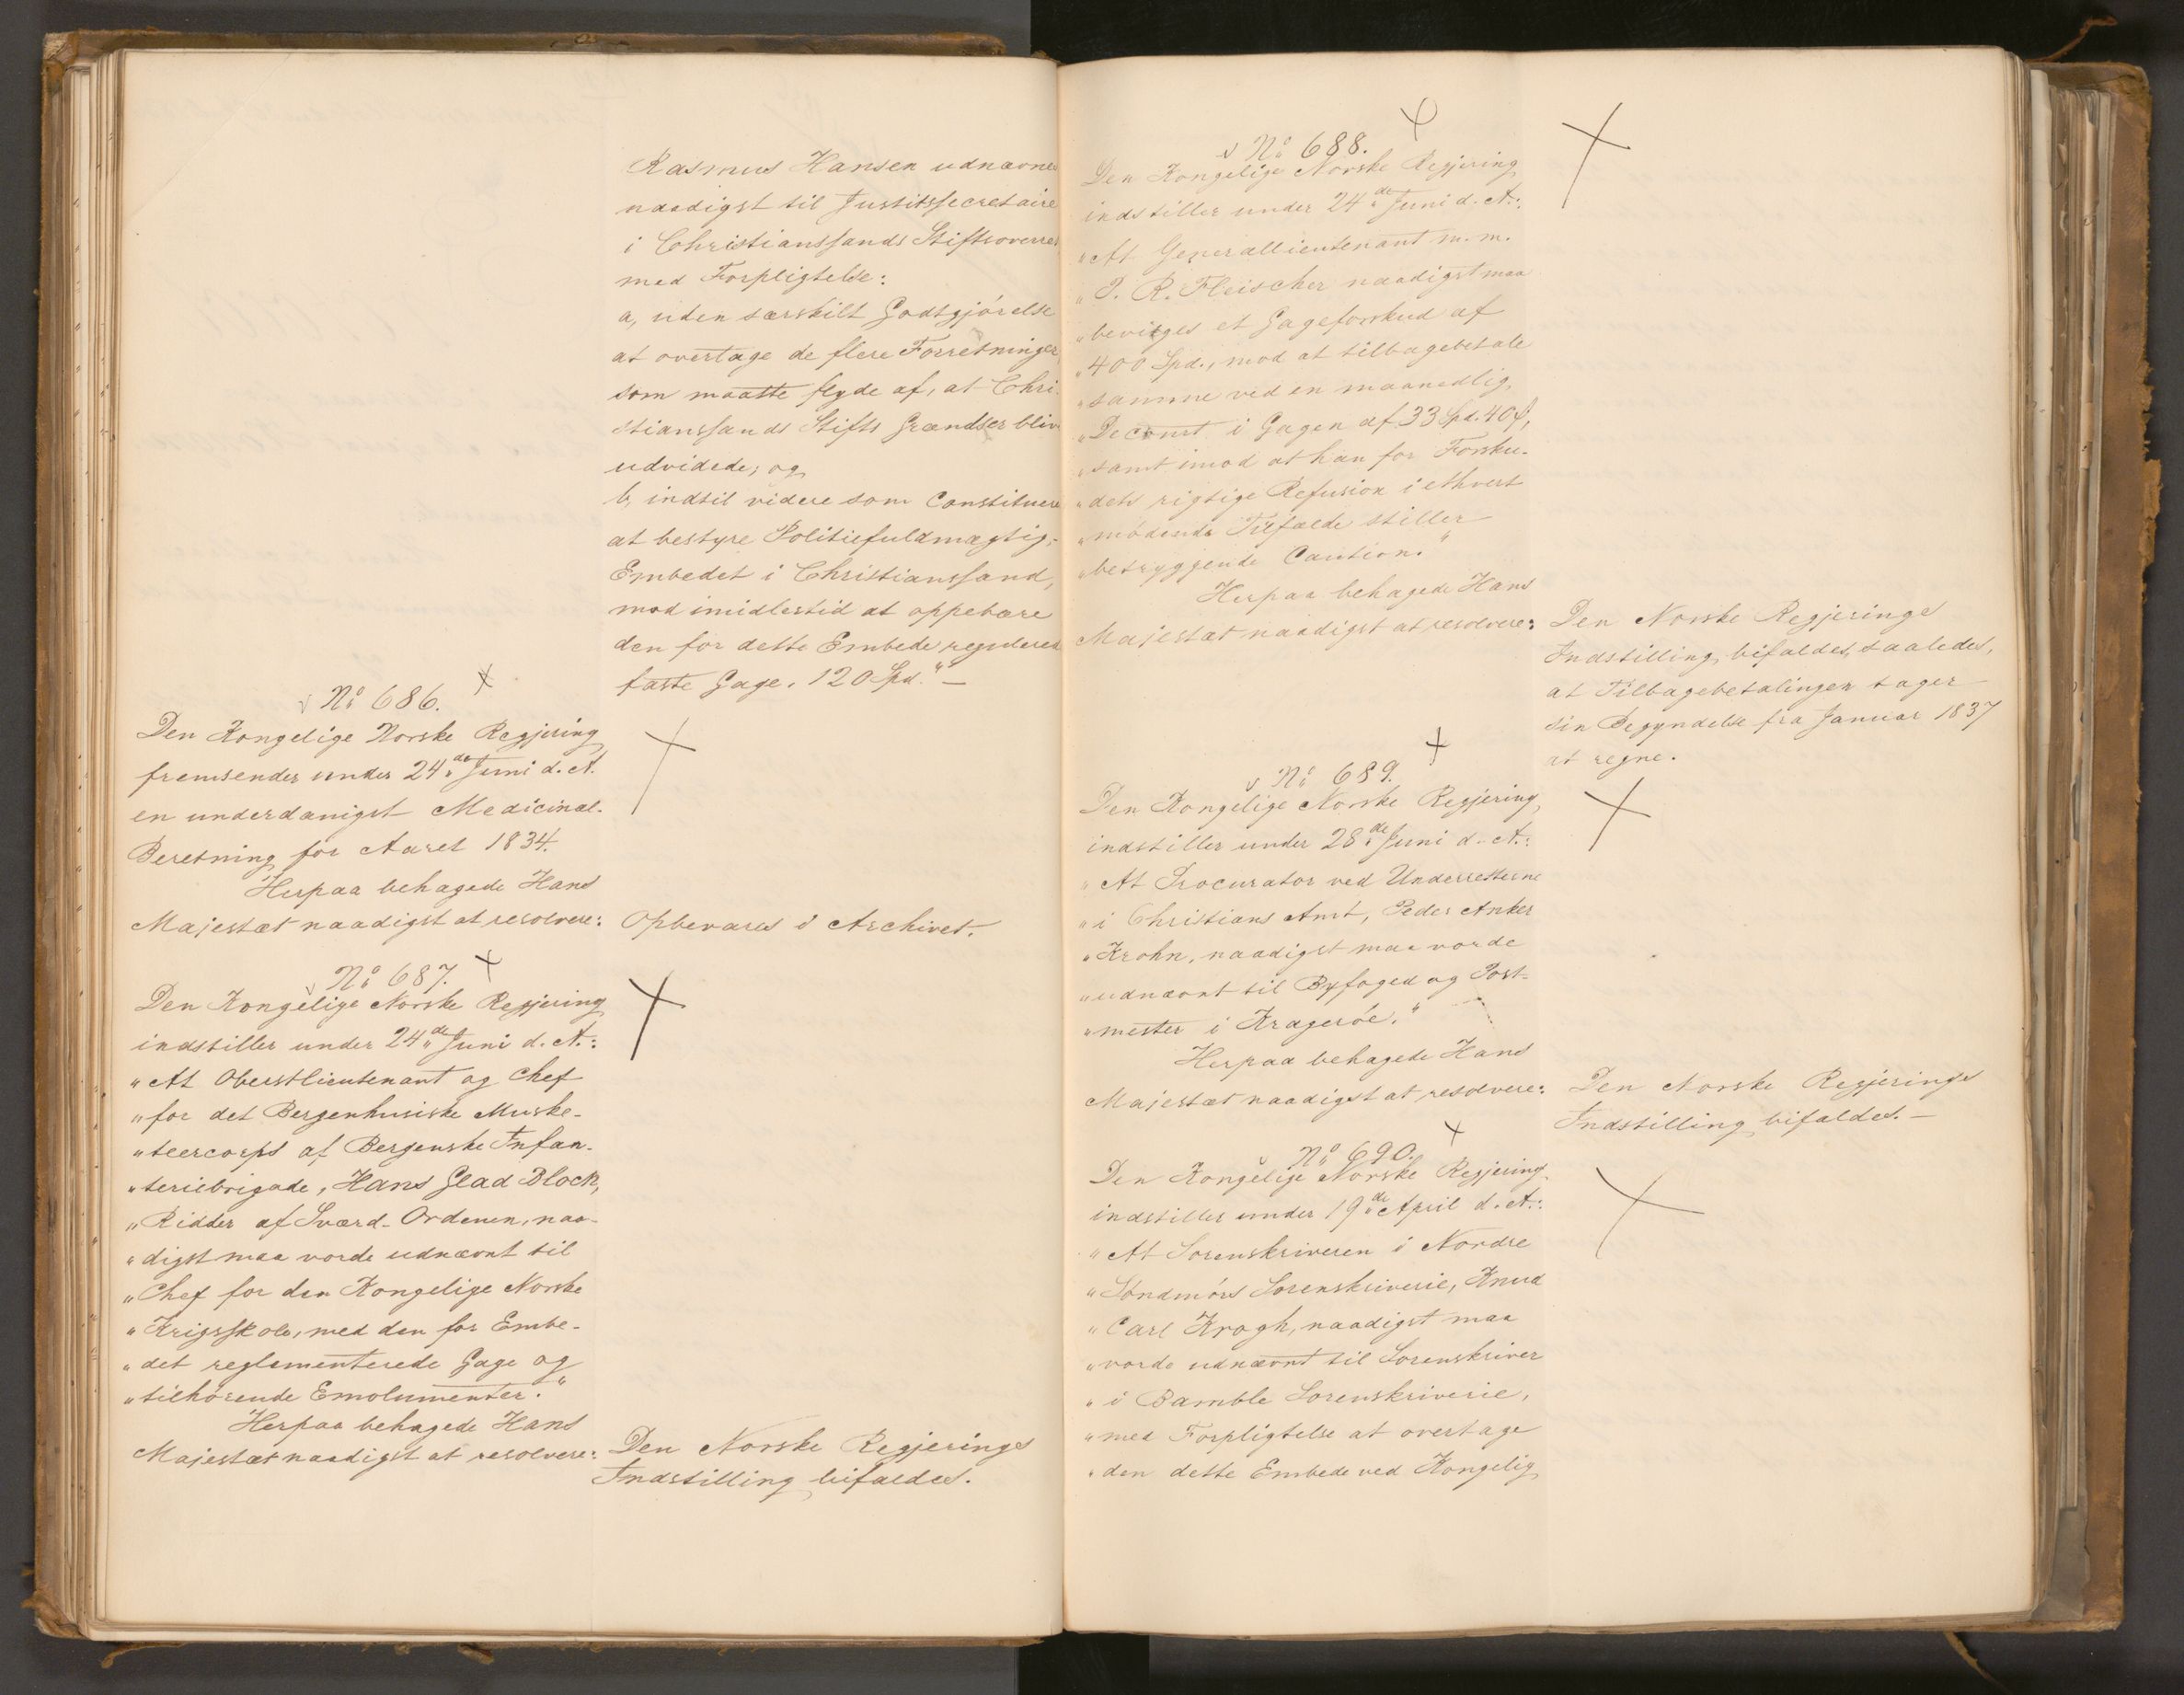 Rasmus Hansen udnævnes
naadigst til Justitssecretaire
i Christianssands Stiftsoverret
med Forpligtelse:
a, uden særskilt Godtgjörelse
at overtage de flere Forretninger,
som maatte flyde af, at Chri-
stianssands Stifts Grændser blive
udvidede; og
b, indtil videre som Constitueret
at bestyre Politiefuldmægtig-
Embedet i Christianssand,
mod imidlertid at oppebære
den for dette Embede regulerede
faste Gage. 120 Spd." —
No 686.
Den Kongelige Norske Regjering
fremsender under 24de Juni d. A.
en underdanigst Medicinal-
Beretning for Aaret 1834.
Herpaa behagede Hans
Majestæt naadigst at resolvere:
Opbevares i Archivet.
No 687.
Den Kongelige Norske Regjering
indstiller under 24de Juni d. A.:
"At Oberstlieutenant og Chef
"for det Bergenhusiske Muske-
"teercorps af Bergenske Infan-
"teriebrigade, Hans Glad Block,
"Ridder af Sværd-Ordenen, naa-
"digst maa vorde udnævnt til
"Chef for den Kongelige Norske
"Krigsskole, med den for Embe-
"det reglementerede Gage og
"tilhörende Emolumenter."
Herpaa behagede Hans
Majestæt naadigst at resolvere:
Den Norske Regjerings
Indstilling bifaldes.
No 688.
Den Kongelige Norske Regjering
indstiller under 24de Juni d. A.:
"At Generallieutenant m. m.
"P. R. Fleischer naadigst maa
"bevilges et Gageforskud af
"400 Spd., mod at tilbagebetale
"samme ved en maanedlig
"Decourt i Gagen af 33 Spd. 40 ß,
"samt imod at han for Forsku-
"dets rigtige Refusion i ethvert
"mödende Tilfælde stiller
"betryggende Caution."
Herpaa behagede Hans
Majestæt naadigst at resolvere:
Den Norske Regjerings
Indstilling bifaldes, saaledes,
at Tilbagebetalingen tager
sin Begyndelse fra Januar 1837
at regne.
No 689.
Den Kongelige Norske Regjering
indstiller under 28de Juni d. A.:
"At Procurator ved Underretterne
"i Christians Amt, Peder Anker
"Krohn, naadigst maa vorde
"udnævnt til Byfoged og Post-
"mester i Krageröe."
Herpaa behagede Hans
Majestæt naadigst at resolvere:
Den Norske Regjerings
Indstilling bifaldes. —
No 690.
Den Kongelige Norske Regjering
indstiller under 19de April d. A.:
"At Sorenskriveren i Nordre
"Söndmörs Sorenskriverie, Knud
"Carl Krogh, naadigst maa
"vorde udnævnt til Sorenskriver
"i Bamble Sorenskriverie,
"med Forpligtelse at overtage
"den dette Embede ved Kongelig